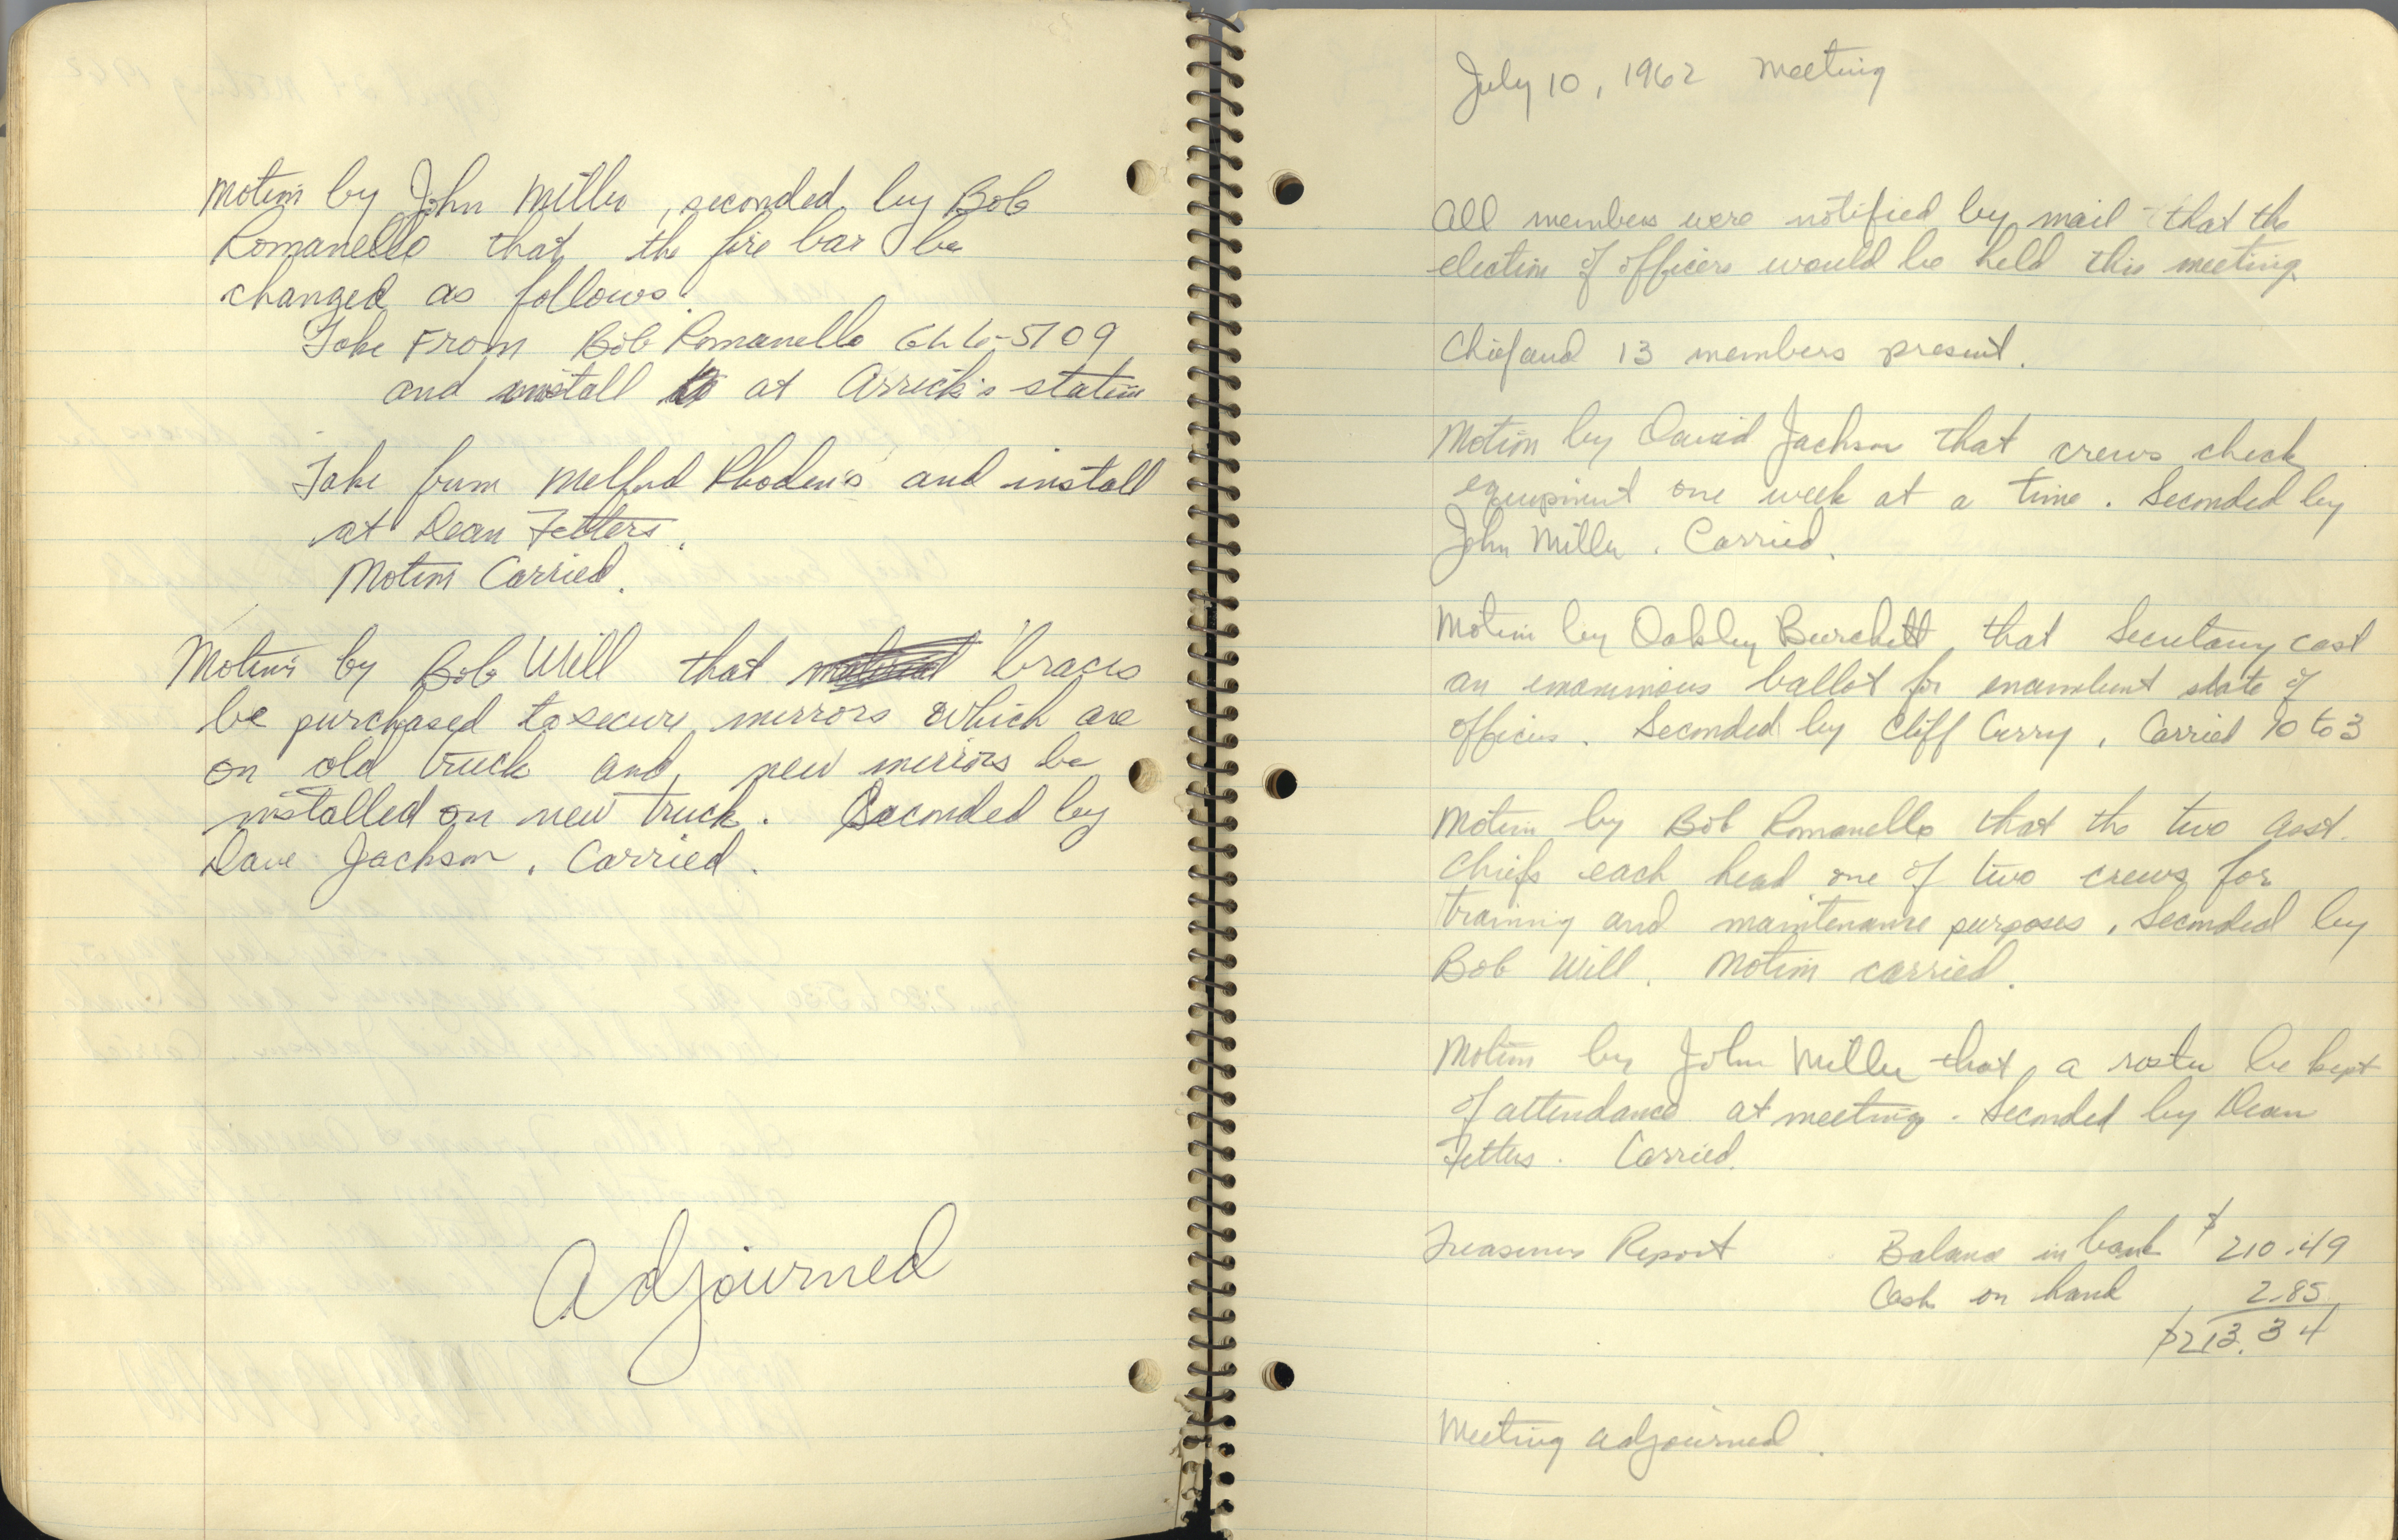 Motion by John Miller, seconded by Bob
Romanello that the fire bar be
changed as follows:
Take From Bob Romanello 646-5109
and install at Arrick's station
Take from Melford Rhoden's and install
at Dean Fetters.
Motion Carried.
Motion by Bob Will that braces
be purchased to secure mirrors which are
on old truck and new mirrors be
installed on new truck. Seconded by
Dave Jackson. Carried.
Adjourned
July 10, 1962 Meeting
All members were notified by mail that the
election of officers would be held this meeting
Chief and 13 members present.
Motion by David Jackson that crews check
equipment one week at a time. Seconded by
John Miller. Carried.
Motion by Oakley Burchett that Secretary cast
an unanimous ballot for slate of
officers. Seconded by Cliff Curry, Carried 10 to 3
Motion by Bob Romanello that the two asst.
Chiefs each head one of two crews for
training and maintenance purposes, Seconded by
Bob Will. Motion carried.
Motion by John Miller that a roster be kept
of attendance at meeting. Seconded by Dean
Fetters. Carried.
Treasurers Report Balance in bank $210.49
Cash on hand 2.85
$213.34
Meeting adjourned.